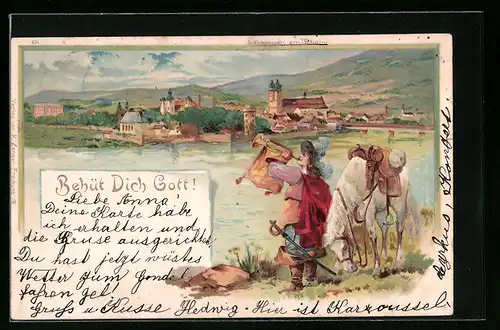 Säckingen am Rhein
Behüt Dich Gott!
Liebe Anna!
Deine Karte habe
ich erhalten und
die Kruse ausgerichtet
Du hast jetzt wüstes
Wetter zum Gondel
fafren gel.
Gruss u Kusse Hedwig - Hier ist Karzoussel.
Konzert.